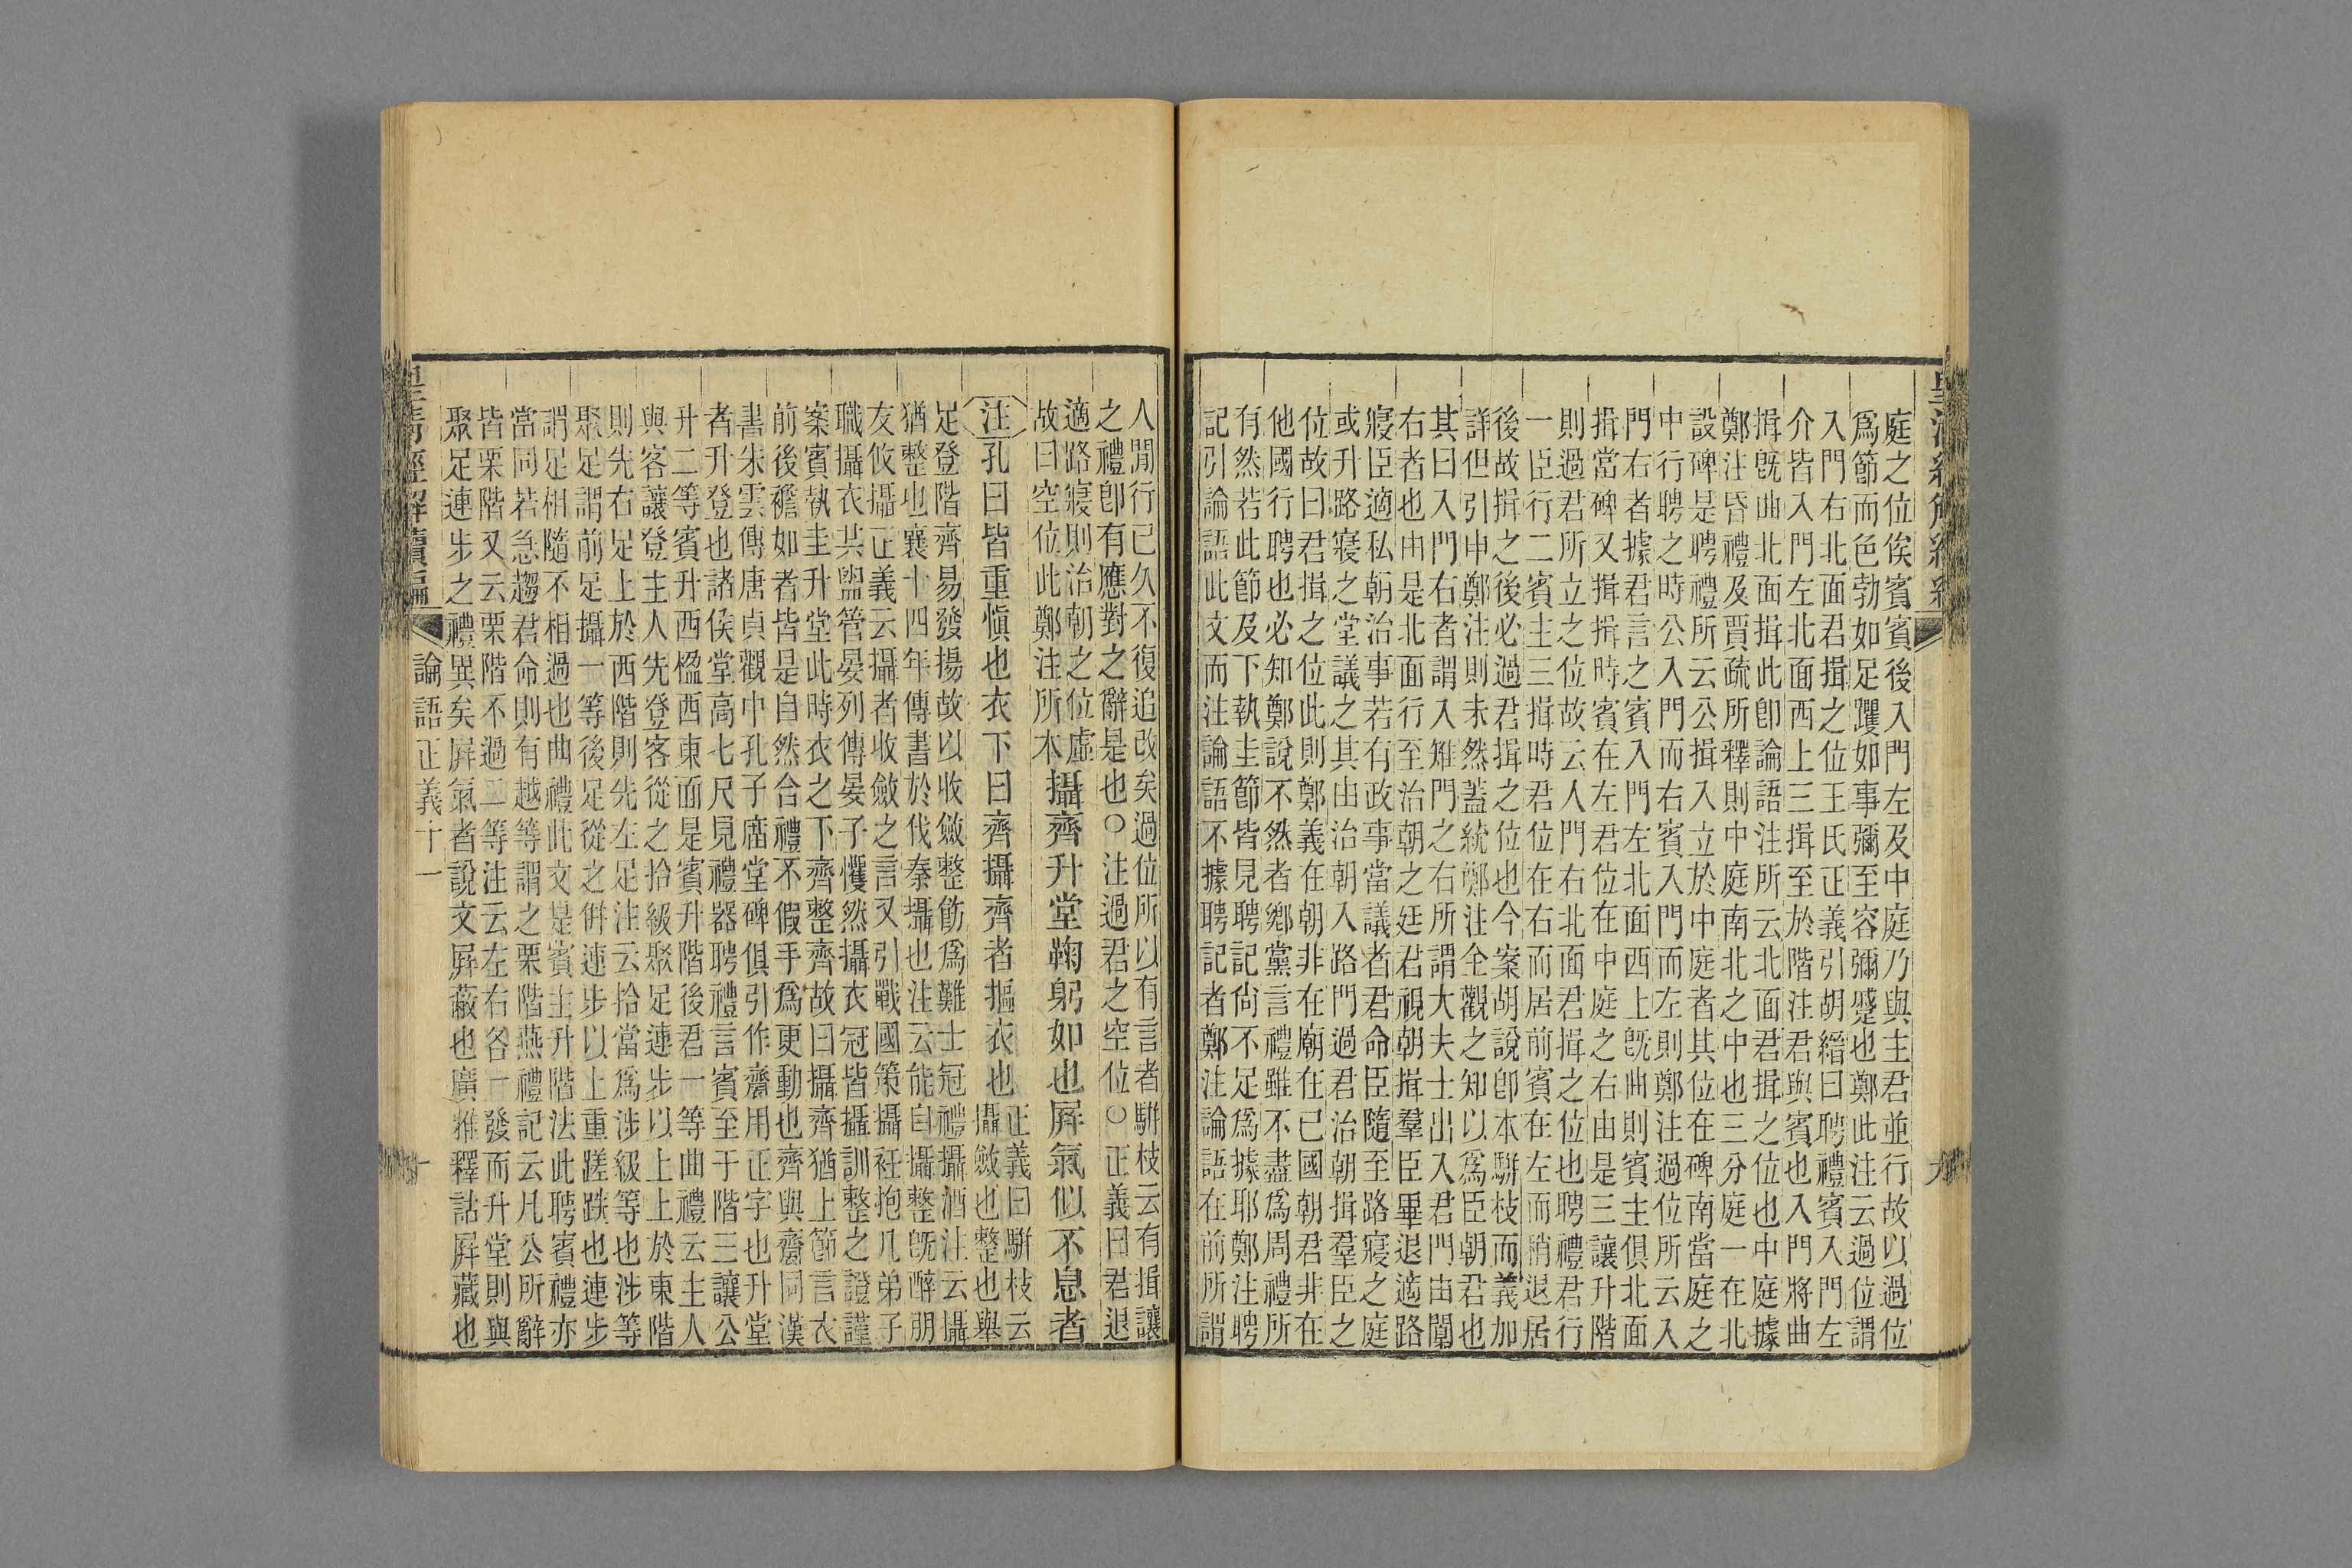 庭之位俟賓賓後入門左及中庭乃與主君並行故以過位
爲節而色勃如足躩如事彌至容彌蹙也鄭此注云過位謂
入門右北面君揖之位王氏正義引胡縉曰聘禮賓入門左
介皆入門左北面西上三揖至於階注君與賓也入門將曲
揖旣曲北面揖此卽論語注所云北面君揖之位也中庭據
鄭注昏禮及賈疏所釋則中庭南北之中也三分庭一在北
設碑是聘禮所云公揖入立於中庭者其位在碑南當庭之
中行聘之時公入門而右賓入門而左則鄭注過位所云入
門右者據君言之賓入門左北面西上旣曲則賓主俱北面
揖當碑又揖揖時賓在左君位在中庭之右由是三讓升階
則過君所立之位故云人門右北面君揖之位也聘禮君行
一臣行二賓主三揖時君位在右而居前賓在左而稍退居
後故揖之後必過君揖之位也今案胡說卽本駢枝而義加
詳但引申鄭注則未然蓋統鄭注全觀之知以爲臣朝君也
其曰入門右者謂入雉門之右所謂大夫士出入君門由闑
右者也由是北面行至治朝之廷君視朝揖羣臣畢退適路
寢臣適私朝治事若有政事當議者君命臣隨至路寢之庭
或升路寢之堂議之其由治朝入路門過君治朝揖羣臣之
位故曰君揖之位此則鄭義在朝非在廟在已國朝君非在
他國行聘也必知鄭說不然者鄉黨言禮雖不盡爲周禮所
有然若此節及下執圭節皆見聘記尙不足爲據耶鄭注聘
記引論語此文而注論語不據聘記者鄭注論語在前所謂
人閒行已久不復追改矣過位所以有言者駢枝云有揖讓
之禮卽有應對之辭是也○注過君之空位○正義曰君退
適路寢則治朝之位虛
故曰空位此鄭注所本
攝齊升堂鞠躬如也屛氣似不息者
注孔曰皆重愼也衣下曰齊攝齊者摳衣也
正義曰駢枝云
攝斂也整也舉
足登階齊易發揚故以收斂整飭爲難士冠禮攝酒注云攝
猶整也襄十四年傳書於伐秦攝也注云能自攝整旣醉朋
友攸攝正義云攝者收斂之言又引戰國策攝衽抱几弟子
職攝衣共盥管晏列傳晏子懼然攝衣冠皆攝訓整之證謹
案賓執圭升堂此時衣之下齊整齊故曰攝齊猶上節言衣
前後襜如者皆是自然合禮不假手爲更動也齊與齋同漢
書朱雲傳唐貞觀中孔子廟堂碑俱引作齋用正字也升堂
者升登也諸侯堂高七尺見禮器聘禮言賓至于階三讓公
升二等賓升西楹西東面是賓升階後君一等曲禮云主人
與客讓登主人先登客從之拾級聚足連步以上上於東階
則先右足上於西階則先左足注云拾當爲涉級等也涉等
聚足謂前足攝一等後足從之併連步以上重蹉跌也連步
謂足相隨不相過也曲禮此文是賓主升階法此聘賓禮亦
當同若急趨君命則有越等謂之栗階燕禮記云凡公所辭
皆栗階又云栗階不過二等注云左右各一發而升堂則與
聚足連步之禮異矣屛氣者說文屛蔽也廣雅釋詁屛藏也
論語正義十一